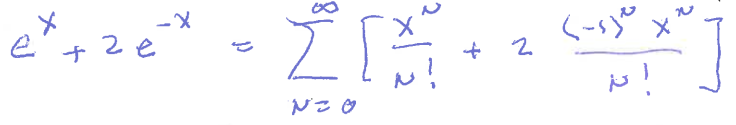 e^x + 2e^{-x} = \sum_{N=0}^{\infty} \left[ \frac{x^N}{N!} + 2 \frac{(-1)^N x^N}{N!} \right]